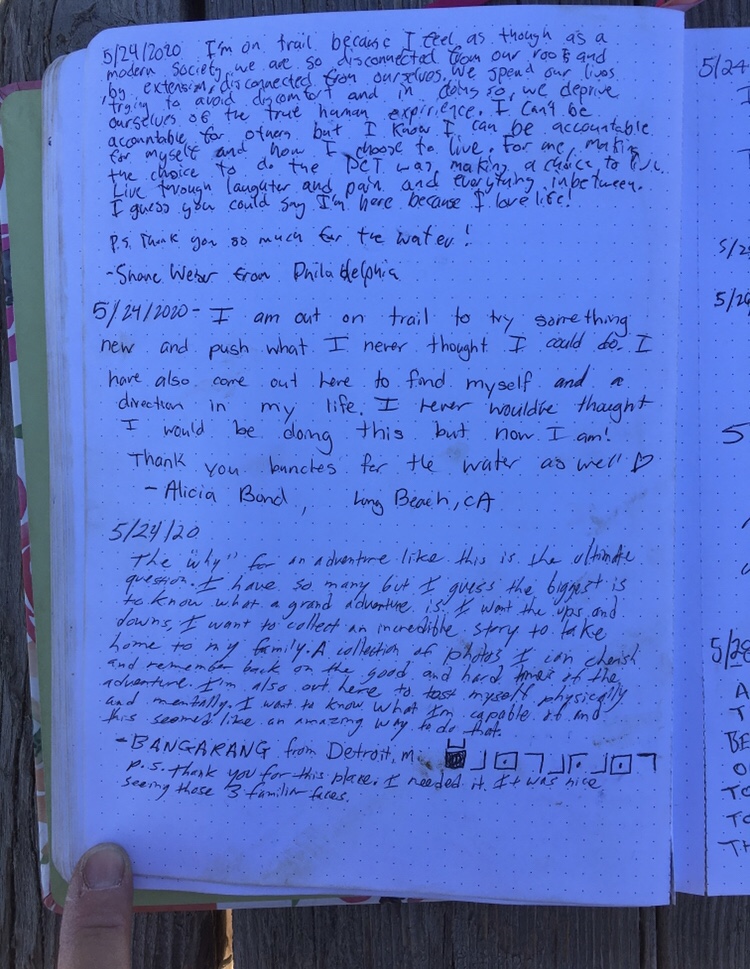 5/24/2020 I'm on trail because I feel as though as a
modern society, we are so disconnected from our roots and
by extension, disconnected from ourselves. We spend our lives
trying to avoid discomfort and in doing so, we deprive
ourselves of the true human expirience. I can't be
accountable for others but I know I can be accountable
for myself and how I choose to live. For me, making
the choice to do the PCT was making a choice to live.
Live through laughter and pain and everything inbetween.
I guess you could say I'm here because I love life!
P.S. Thank you so much for the water!
-Shane Weber from Philadelphia
5/24/2020- I am out on trail to try something
new and push what I never thought I could do. I
have also come out here to find myself and a
direction in my life. I never wouldve thought
I would be doing this but now I am!
Thank you bunches for the water as well ♡
- Alicia Bond, Long Beach, CA
5/24/20
The "why" for an adventure like this is the ultimate
question. I have so many but I guess the biggest is
to know what a grand adventure is. I want the ups and
downs, I want to collect an incredible story to take
home to my family. A collection of photos I can cherish
and remember back on the good and hard times of the
adventure. I'm also out here to test myself physically
and mentally. I want to know what I'm capable of and
this seemed like an amazing way to do that.
-BANGARANG from Detroit, m.
P.S. Thank you for this place. I needed it. It was nice
seeing those 3 familiar faces.
5/24
T
5/2
5/2
5
5/28
A
T
BE
O
TO
TO
TH